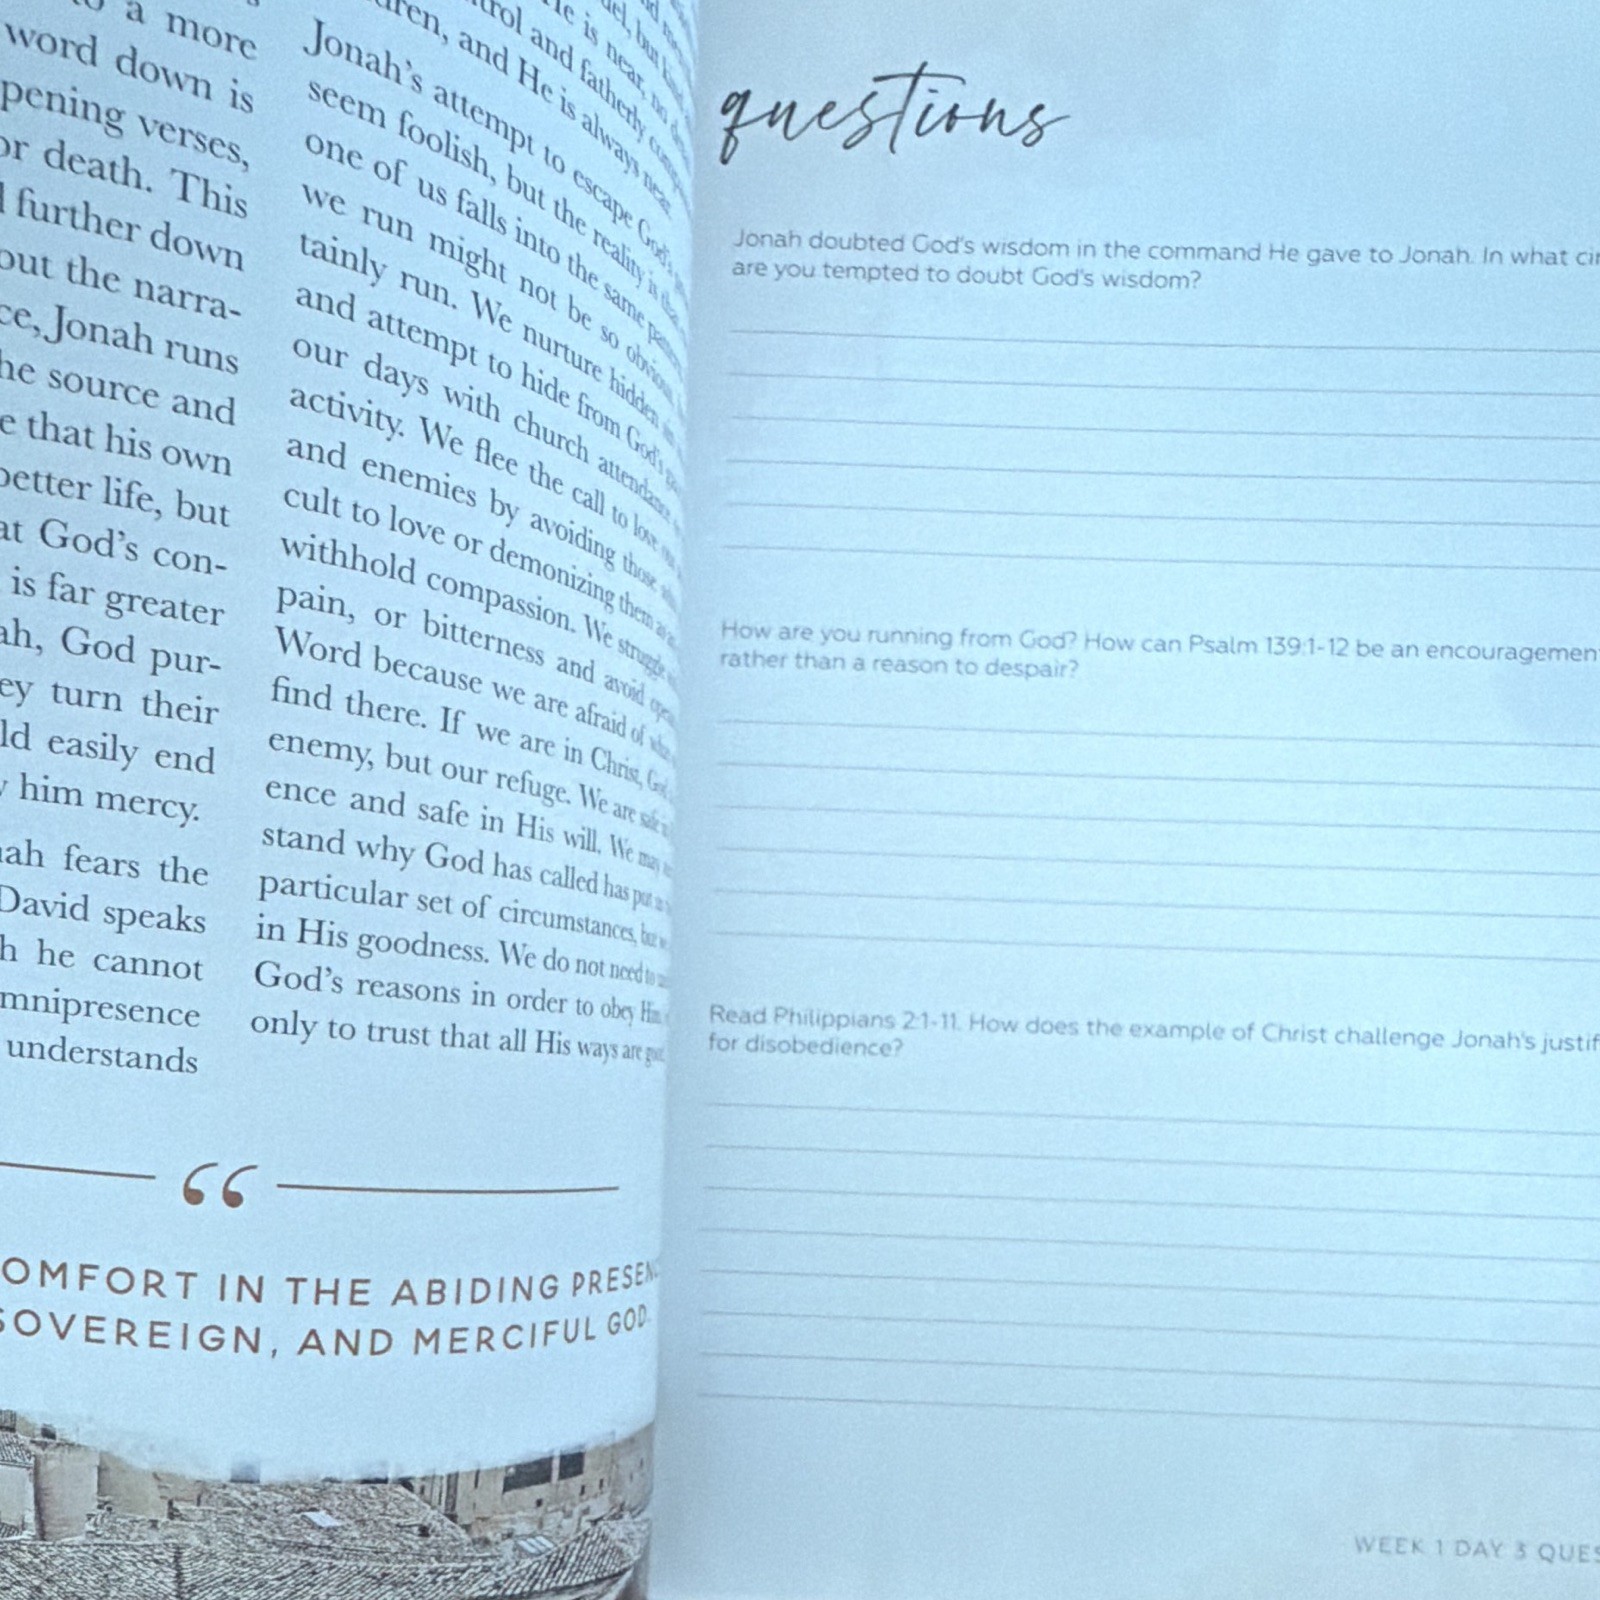 a more
word down is
pening verses,
or death. This
further down
out the narra-
ce, Jonah runs
he source and
e that his own
better life, but
at God's con-
is far greater
ah, God pur-
ey turn their
ld easily end
him mercy.
ah fears the
David speaks
h he cannot
mnipresence
understands
He is near, no
trol and fatherly
ren, and He is always near.
Jonah's attempt to escape God's
seem foolish, but the reality is that
one of us falls into the same
we run might not be so obvious,
tainly run. We nurture hidden
and attempt to hide from God's
our days with church attendance
activity. We flee the call to love
and enemies by avoiding those
cult to love or demonizing them
withhold compassion. We struggle
pain, or bitterness and avoid
Word because we are afraid of
find there. If we are in Christ, God
enemy, but our refuge. We are safe
ence and safe in His will. We may
stand why God has called has put
particular set of circumstances, but
in His goodness. We do not need to
God's reasons in order to obey Him
only to trust that all His ways are
“
OMFORT IN THE ABIDING PRESENC
SOVEREIGN, AND MERCIFUL GOD.
questions
Jonah doubted God's wisdom in the command He gave to Jonah. In what cir
are you tempted to doubt God's wisdom?
How are you running from God? How can Psalm 139:1-12 be an encouragemen
rather than a reason to despair?
Read Philippians 2:1-11. How does the example of Christ challenge Jonah's justif
for disobedience?
WEEK 1 DAY 3 QUES